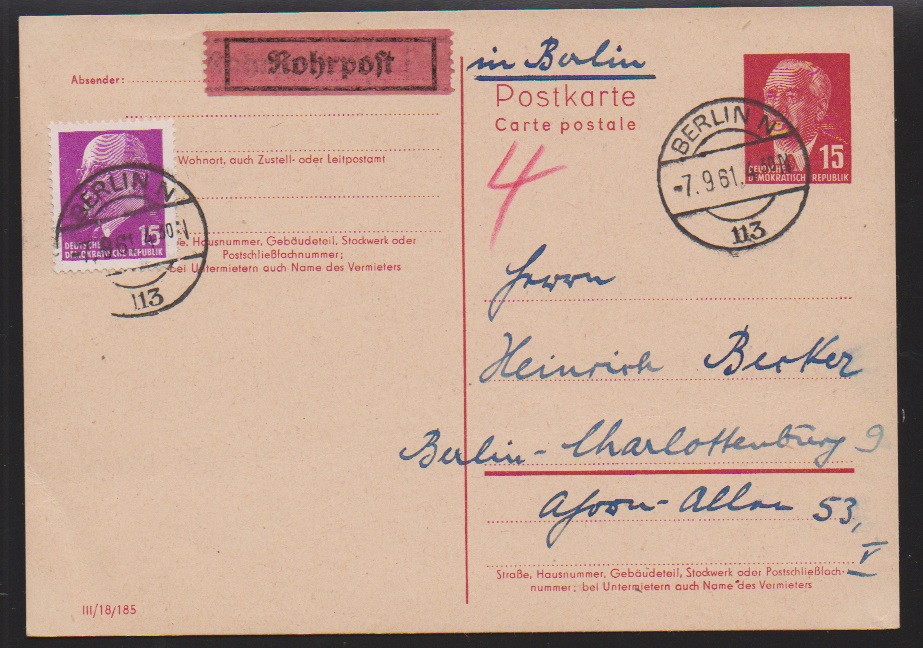 Absender:
Rohrpost
in Berlin
Postkarte
Carte postale
15
DEUTSCHE
DEMOKRATISCHE REPUBLIK
BERLIN N
-7.9.61.
113
4
Wohnort, auch Zustell- oder Leitpostamt
15
DEUTSCHE
DEMOKRATISCHE REPUBLIK
BERLIN N
9.61
113
Hausnummer, Gebäudeteil, Stockwerk oder
Postschließfachnummer;
bei Untermietern auch Name des Vermieters
Herrn
Heinrich Becker
Berlin-Charlottenburg 9
Ahorn-Allee 53,
V
Straße, Hausnummer, Gebäudeteil, Stockwerk oder Postschließfach-
nummer; bei Untermietern auch Name des Vermieters
III/18/185